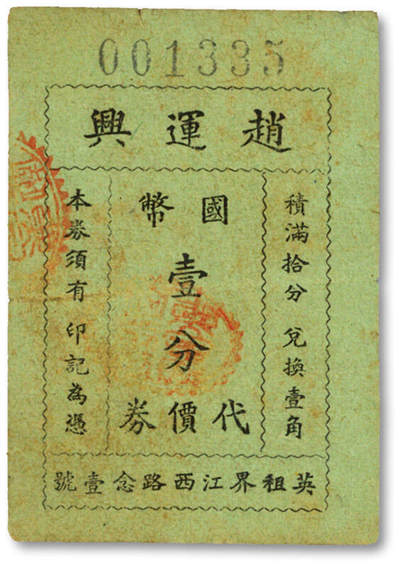 001335
趙運興
積滿拾分 兌換壹角
國幣
壹分
代價券
本券須有 印記為憑
英租界江西路念壹號